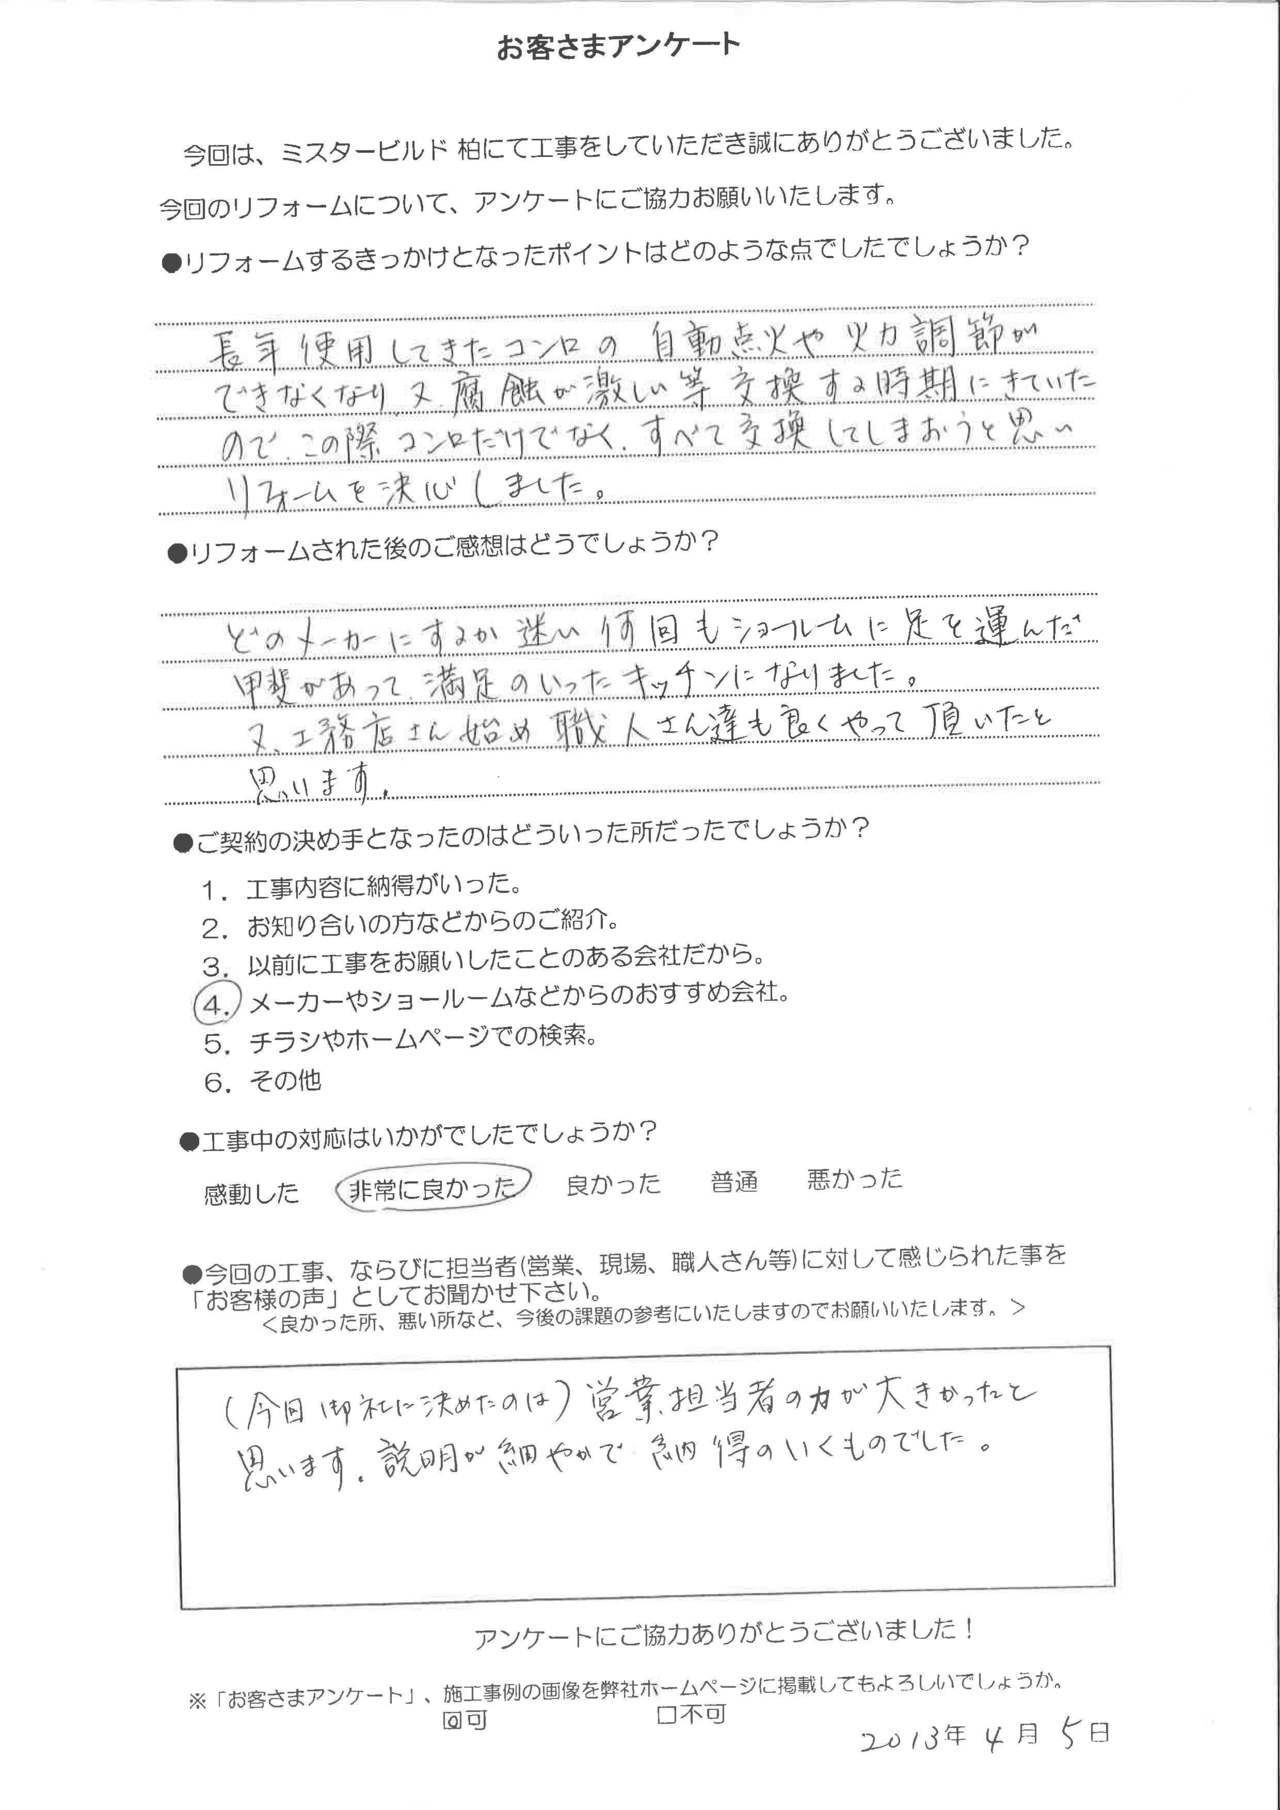 お客さまアンケート
今回は、ミスタービルド 柏にて工事をしていただき誠にありがとうございました。
今回のリフォームについて、アンケートにご協力お願いいたします。
●リフォームするきっかけとなったポイントはどのような点でしたでしょうか？
長年使用してきたコンロの 自動点火や火力調節が
できなくなり、又、腐蝕が激しい等 交換する時期にきていた
ので、この際 コンロだけでなく、すべて交換してしまおうと思い
リフォームを決心しました。
●リフォームされた後のご感想はどうでしょうか？
どのメーカーにするか 迷い 何回もショールームに足を運んだ
甲斐があって、満足のいったキッチンになりました。
又、工務店さん始め 職人さん達も良くやって頂いたと
思います。
●ご契約の決め手となったのはどういった所だったでしょうか？
1．工事内容に納得がいった。
2．お知り合いの方などからのご紹介。
3．以前に工事をお願いしたことのある会社だから。
4．メーカーやショールームなどからのおすすめ会社。
5．チラシやホームページでの検索。
6．その他
●工事中の対応はいかがでしたでしょうか？
感動した 非常に良かった 良かった 普通 悪かった
●今回の工事、ならびに担当者(営業、現場、職人さん等)に対して感じられた事を
「お客様の声」としてお聞かせ下さい。
＜良かった所、悪い所など、今後の課題の参考にいたしますのでお願いいたします。＞
(今日 御社に決めたのは) 営業担当者の力が大きかったと
思います。説明が細やかで 納得のいくものでした。
アンケートにご協力ありがとうございました！
※「お客さまアンケート」、施工事例の画像を弊社ホームページに掲載してもよろしいでしょうか。
☑可 □不可
2013年 4月 5日